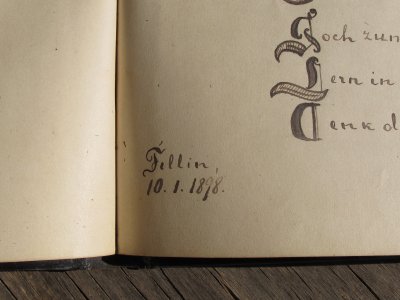 Hoch zum
Lern in
Denk d
Fellin,
10. 1. 1898.